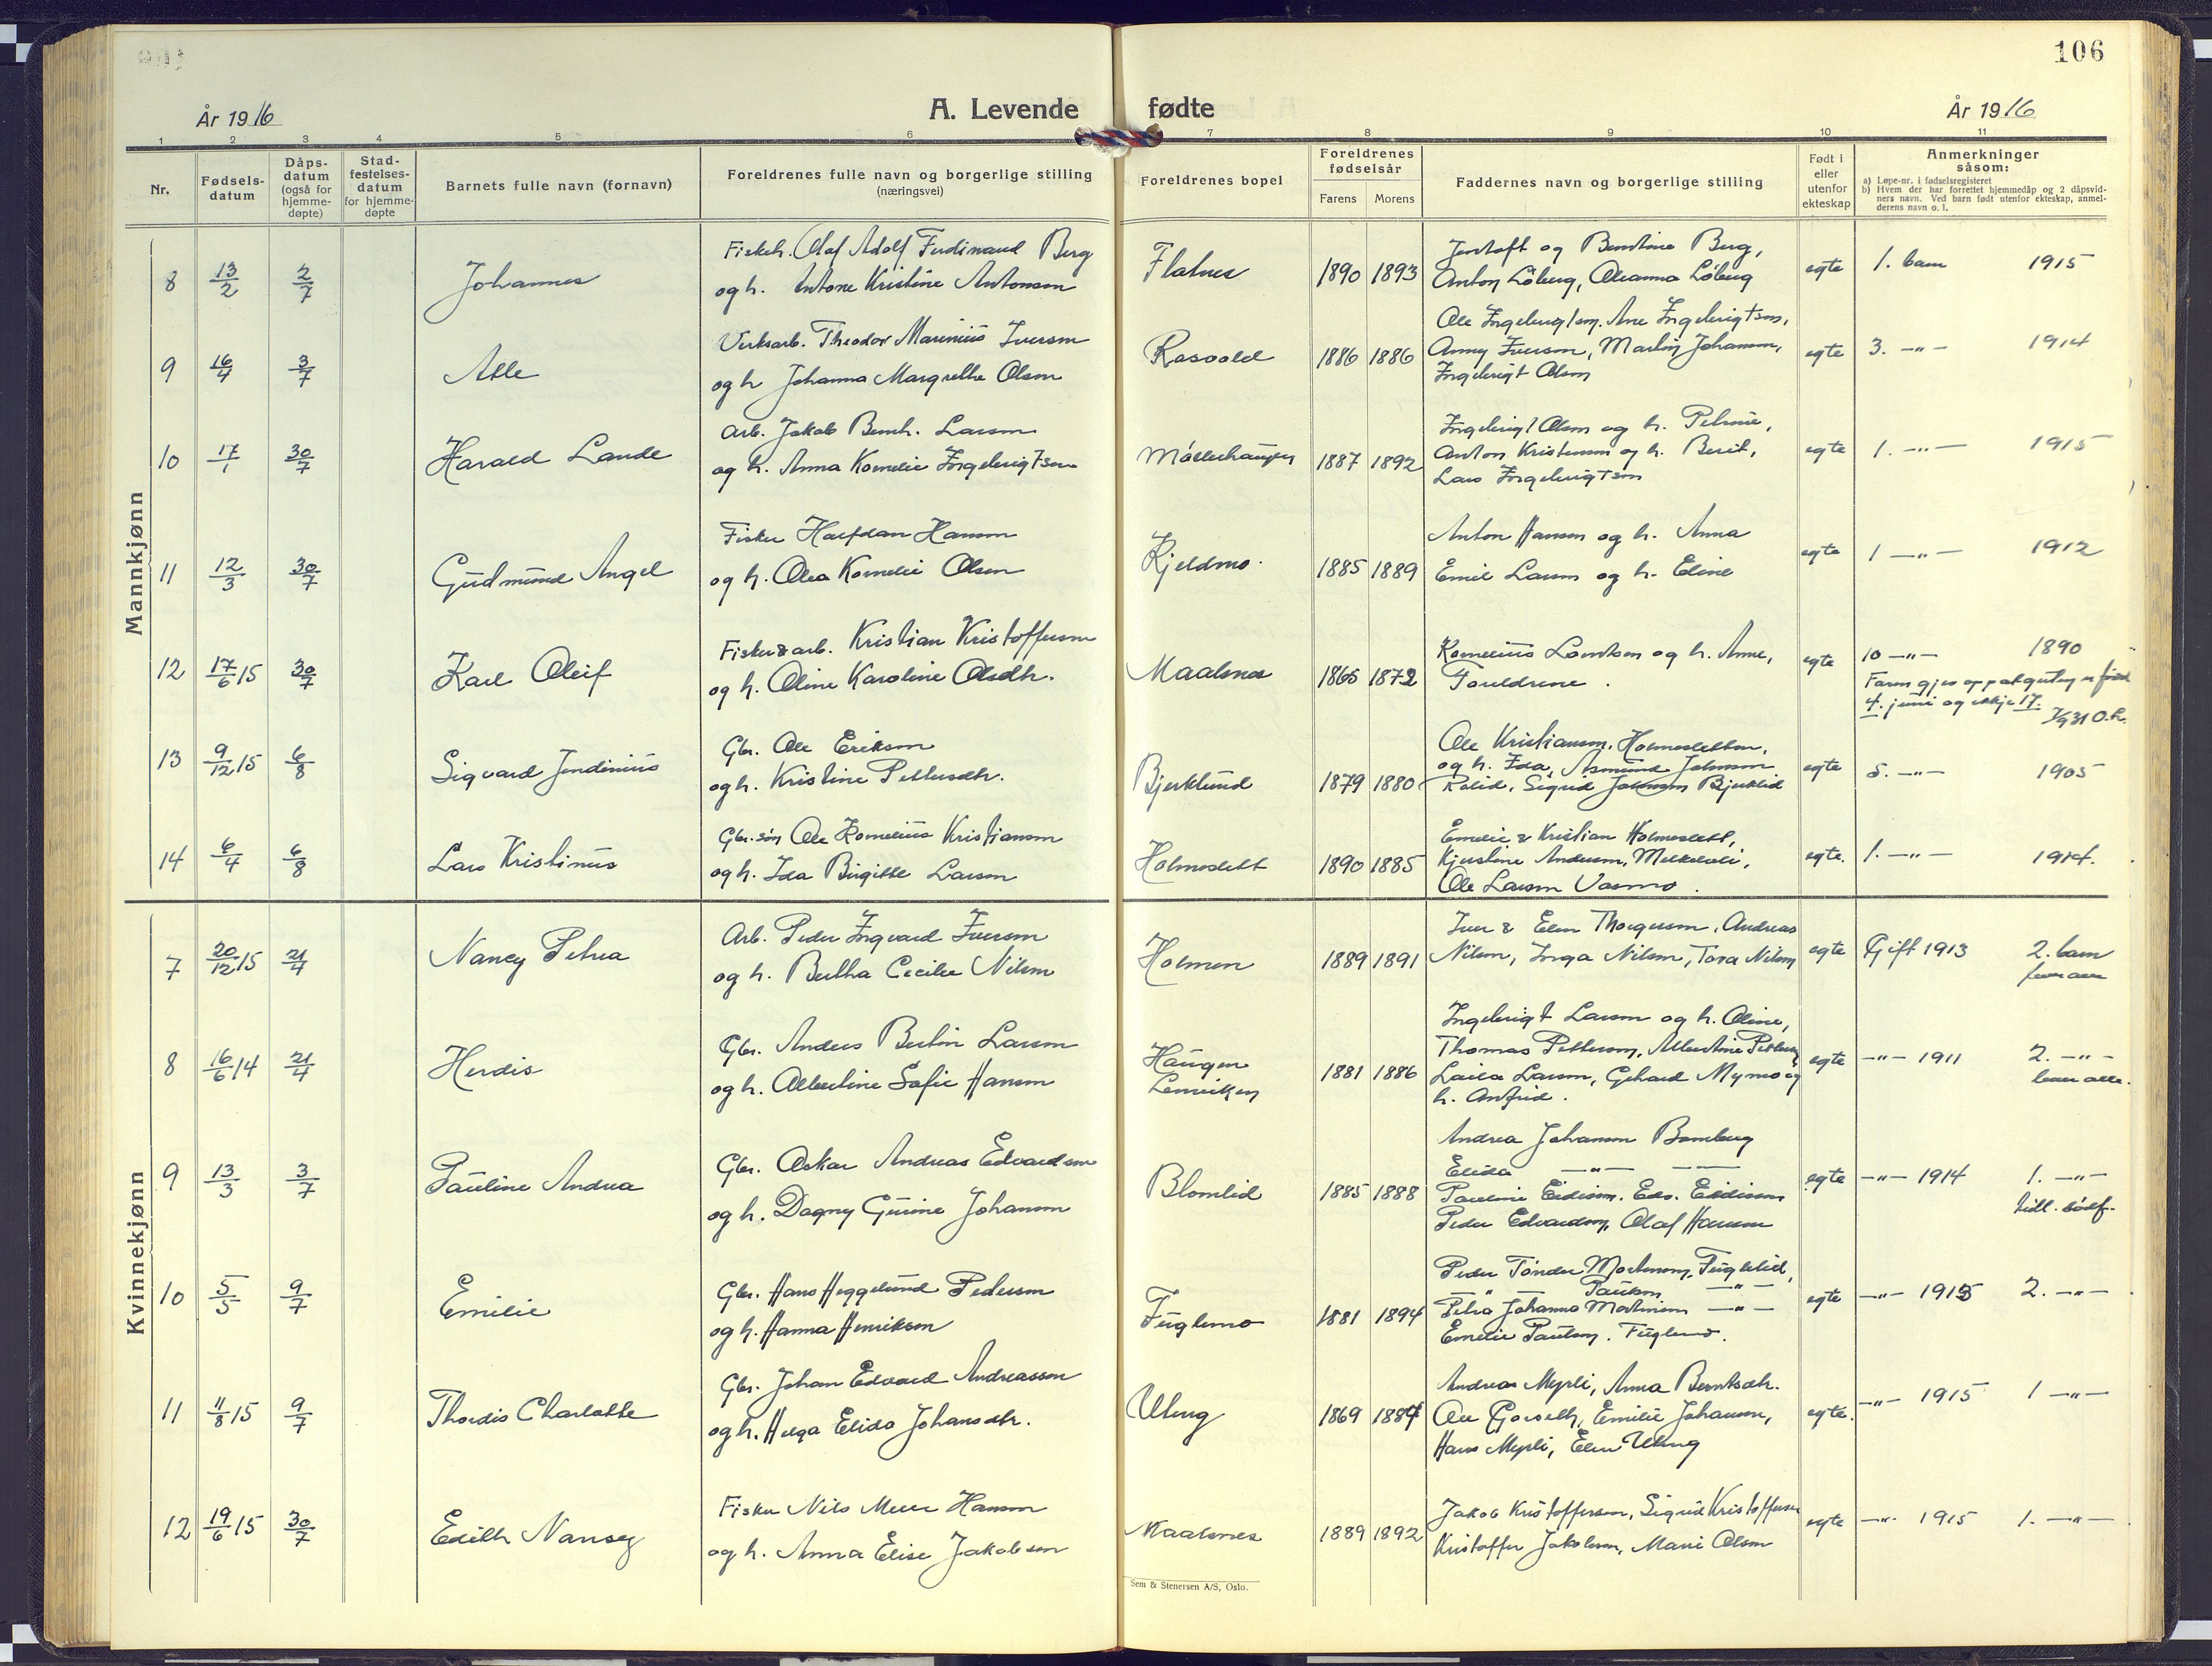 106
År 1916
A. Levende fødte
År 1916
1 2 3 4 5 6 7 8 9 10 11
Nr.
Fødsels-
datum
Dåps-
datum
(også for
hjemme-
døpte)
Stad-
festelses-
datum
for hjemme-
døpte
Barnets fulle navn (fornavn)
Foreldrenes fulle navn og borgerlige stilling
(næringsvei)
Foreldrenes bopel
Foreldrenes
fødselsår
Farens Morens
Faddernes navn og borgerlige stilling
Født i
eller
utenfor
ekteskap
Anmerkninger
såsom:
a) Løpe-nr. i fødselsregisteret
b) Hvem der har forrettet hjemmedåp og 2 dåpsvid-
ners navn. Ved barn født utenfor ekteskap, anmel-
derens navn o. l.
Mannkjønn
8 13/2 2/7 Johannes
Fiskeh. Olaf Adolf Ferdinand Berg
og h. Antone Kristine Antonsen
Flatnes 1890 1893
Jentoft og Berntine Berg,
Anton Löberg, Oleanna Löberg
egte 1. barn 1915
9 16/4 3/7 Atle
Verksarb. Theodor Marinius Iversen
og h Johanna Margrethe Olsen
Rosvold 1886 1886
Ole Ingebrigtsen, Ane Ingebrigtsen,
Anny Iversen, Martin Johansen,
Ingebrigt Olsen
egte 3. -"- 1914
10 17/1 30/7 Harald Lande
Arb. Jakob Bernh. Larsen
og h. Anna Kornelie Ingebrigtsen
Möllerhaugen 1887 1892
Ingebrigt Olsen og h. Petrine,
Anton Kristensen og h. Berit,
Lars Ingebrigtsen
egte 1. -"- 1915
11 12/3 30/7 Gudmund Angel
Fisker Halfdan Hansen
og h. Olea Kornelie Olsen
Kjeldmo. 1885 1889
Anton Hansen og h. Anna
Emil Larsen og h. Eline
egte 1 -"- 1912
12 17/6 15 30/7 Karl Oleif
Fisker & arb. Kristian Kristoffersen
og h. Oline Karoline Olsdtr.
Maalsnes 1865 1872
Kornelius Lorntsen og h. Anne,
Foreldrene.
egte 10 -"- 1890
Faren gjev opp at guten er född
4. juni og ikkje 17.
O.h.
13 9/12 15 6/8 Sigvard Jendinius
Gbr. Ole Eriksen
og h. Kristine Pettersdtr.
Bjerklund 1879 1880
Ole Kristiansen, Holmesletten,
og h. Ida, Asmund Johnsen
Kolid, Sigrid Johnsen Bjerklid
egte 5. -"- 1905
14 6/4 6/8 Lars Kristinus
Gbr. sön Ole Kornelius Kristiansen
og h. Ida Birgitte Larsen
Holmeslett 1890 1885
Emelie & Kristian Holmeslett,
Kjerstine Andersen, Melkelvli,
Ole Larsen Vasmo.
egte. 1. -"- 1914.
Kvinnekjønn
7 20/12 15 24/4 Nancy Petra
Arb. Peder Ingvard Iversen
og h. Bertha Cecilie Nilsen
Holmen 1889 1891
Iver & Elen Thorgersen, Andreas
Nilsen, Inga Nilsen, Tora Nilsen
egte Gift 1913 2. barn
8 16/6 14 24/4 Herdis
Gbr. Anders Bertin Larsen
og h. Albertine Sofie Hansen
Haugen
Lenviken 1881 1886
Ingebrigt Larsen og h. Oline,
Thomas Pettersen, Albertine Pettersen
Laila Larsen, Gerhard Mymo og
h. Anfrid.
egte -"- 1911 2. -"-
9 13/3 3/7 Pauline Andrea
Gbr. Oskar Andreas Edvardsen
og h. Dagny Gurine Johansen
Blomlid 1885 1888
Andrea Johansen Bomberg
Elida -"- -
Pauline Eidissen, Edv. Eidissen
Peder Edvardsen, Olaf Hansen
egte -"- 1914 1. -"-
tidl. dödf.
10 5/5 9/7 Emilie
Gbr. Hans Heggelund Pedersen
og h. Hanna Henriksen
Fuglemo 1881 1894
Peder Tönder Mortensen, Fuglelid,
-"- Paulsen -"-
Petra Johanna Mortensen -"-
Emelie Paulsen. Fuglemo.
egte -"- 1915 2. -"-
11 11/8 15 9/7 Thordis Charlotte
Gbr. Johan Edvard Andreassen
og h. Helga Elida Johansdtr.
Uteng 1869 1884
Andreas Myrli, Anna Berntsdtr.
Ole Gjovelth, Emilie Johansen,
Hans Myrli, Elen Uteng
egte. -"- 1915 1 -"-
12 19/6 15 30/7 Edith Nansey
Fisker Nils Meier Hansen
og h. Anna Elise Jakobsen
Maalsnes 1889 1892
Jakob Kristoffersen, Sigrid Kristoffersen
Kristoffer Jakobsen, Marie Olsen
egte -"- 1915 1. -"-
Sem & Stenersen A/S, Oslo.